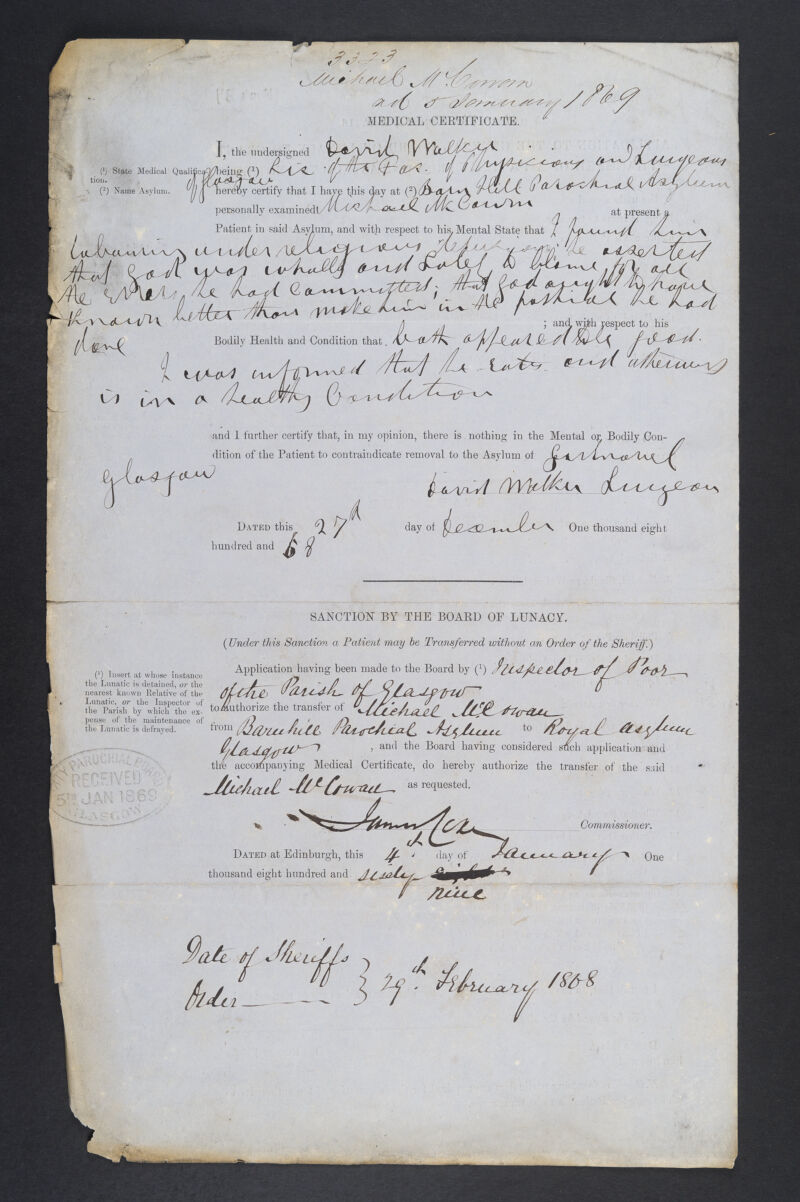 3323
Michael McCowan
ad 5 January 1869
MEDICAL CERTIFICATE.
I, the undersigned David Walker
(¹) State Medical Qualifica- being (¹) Lic. of the Fac. of Physicians and Surgeons
tion. of Glasgow
(²) Name Asylum. hereby certify that I have this day at (²) Barn Hill Parochial Asylum
personally examined Michael McCowan at present a
Patient in said Asylum, and with respect to his Mental State that I found him
labouring under religious he asserted
that God was wholly and Solely to blame for all
the errors he had committed; that God ought to have
known better than make him in the he had
done
; and with respect to his
Bodily Health and Condition that both appeared to be good.
I was informed that he eats and otherwise
is in a healthy Condition
and I further certify that, in my opinion, there is nothing in the Mental or Bodily Con-
dition of the Patient to contraindicate removal to the Asylum of Gartnavel
Glasgow
David Walker Surgeon
DATED this 27th day of December One thousand eight
hundred and 68
SANCTION BY THE BOARD OF LUNACY.
(Under this Sanction a Patient may be Transferred without an Order of the Sheriff.)
(¹) Insert at whose instance
the Lunatic is detained, or the
nearest known Relative of the
Lunatic, or the Inspector of
the Parish by which the ex-
pense of the maintenance of
the Lunatic is defrayed.
Application having been made to the Board by (¹) Inspector of Poor
of the Parish of Glasgow
to authorize the transfer of Michael McCowan
from Barnhill Parochial Asylum to Royal Asylum
Glasgow , and the Board having considered such application and
the accompanying Medical Certificate, do hereby authorize the transfer of the said
Michael McCowan as requested.
CITY PAROCHIAL
RECEIVED
5TH JAN 1869
GLASGOW
James Coxe Commissioner.
DATED at Edinburgh, this 4th day of January One
thousand eight hundred and sixty eight
nine
Date of Sheriffs
Order } 29th February 1868